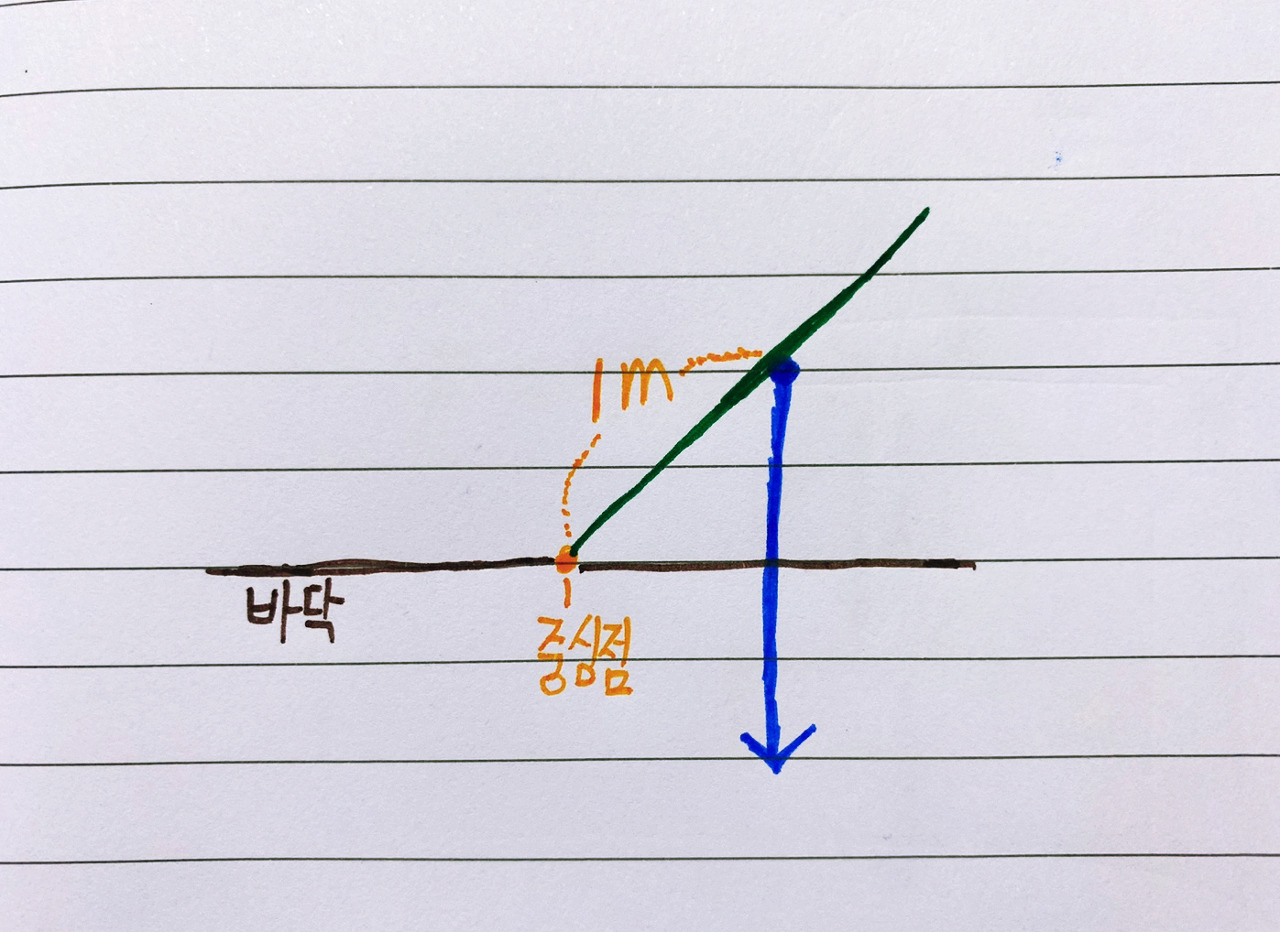 1m
바닥
중심점